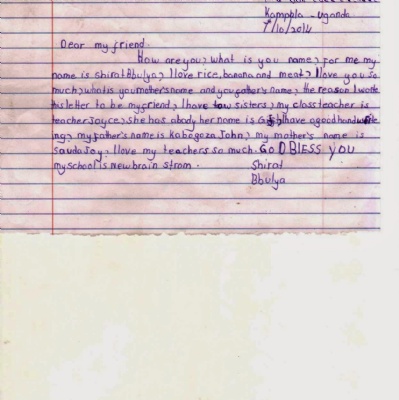 Kampala - Uganda
7/10/2014
Dear my friend.
How are you, what is you name, for me my
name is shirat Bbulya, I love rice, banana and meat, I love you so
much, what is you mother's name and you father's name, the reason I wrote
this letter to be my friend, I have tow sisters, my class teacher is
teacher Joyce, she has a body her name is I have a good handwrite
ing, my father's name is Kabogoza John, my mother's name is
sauda Joy, I love my teachers so much. GOD BLESS YOU
my school is New brain strom.
Shirat
Bbulya